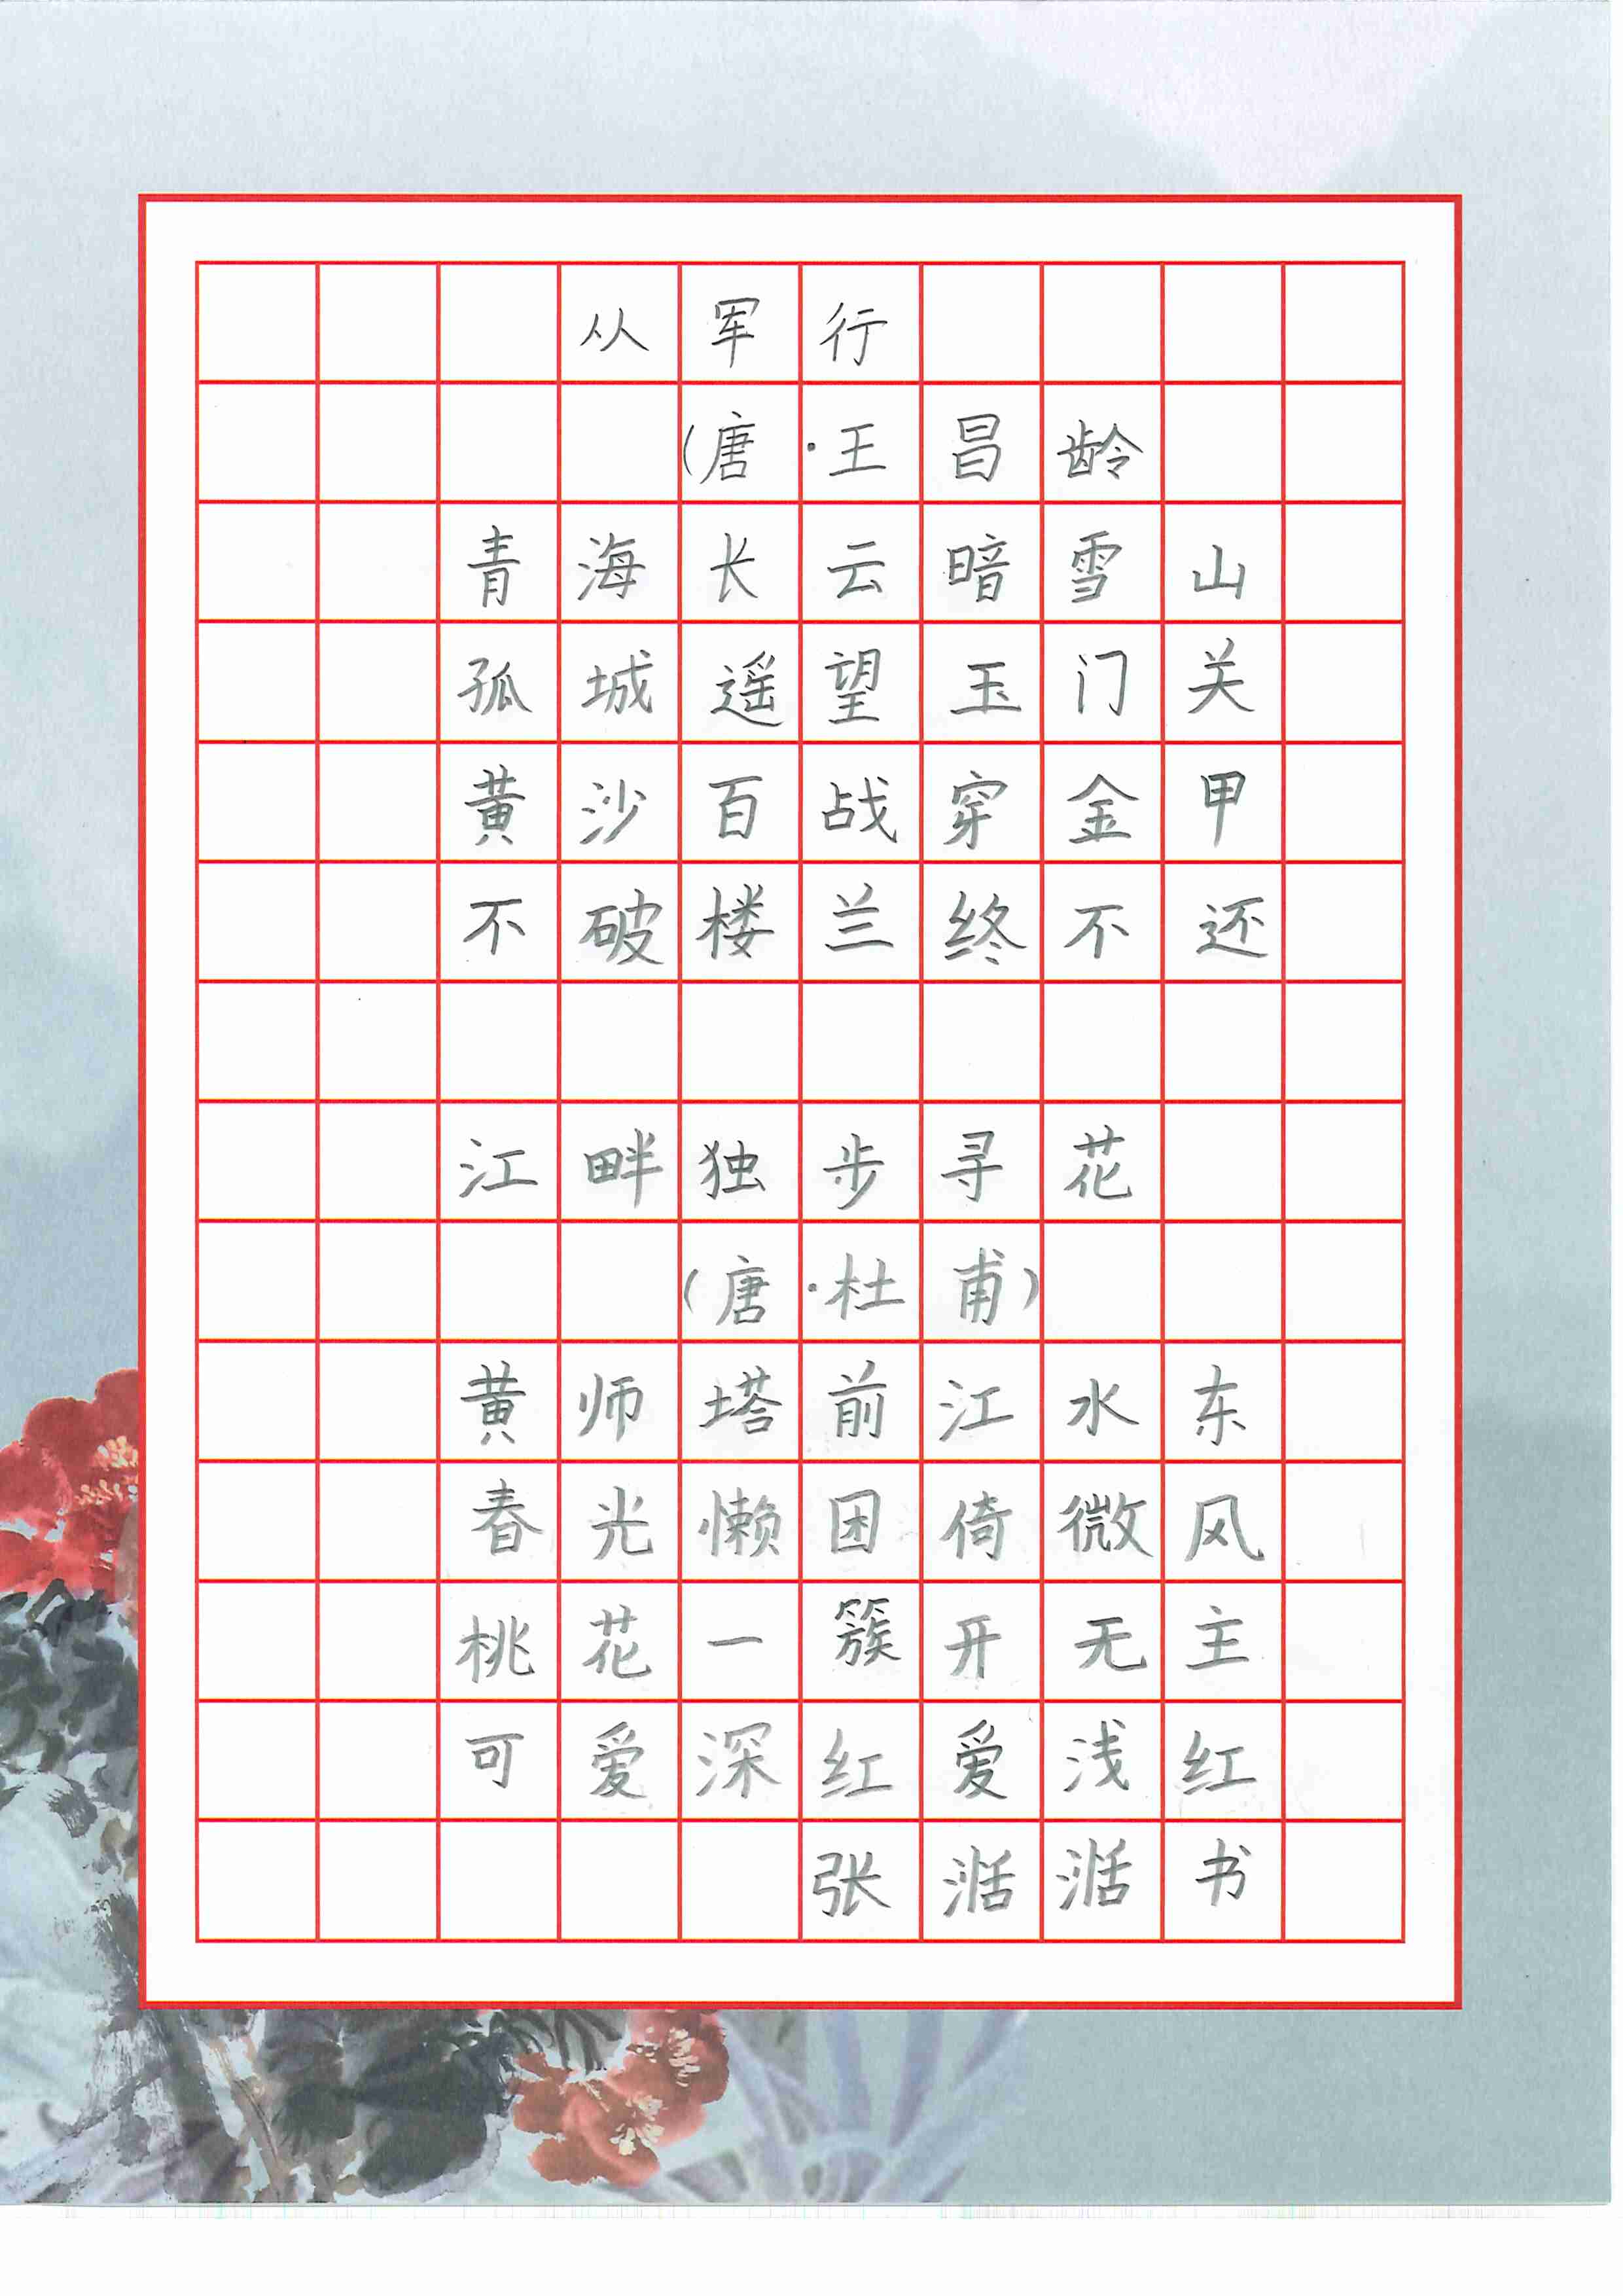 从军行
(唐·王昌龄
青海长云暗雪山
孤城遥望玉门关
黄沙百战穿金甲
不破楼兰终不还
江畔独步寻花
(唐·杜甫)
黄师塔前江水东
春光懒困倚微风
桃花一簇开无主
可爱深红爱浅红
张湉湉书